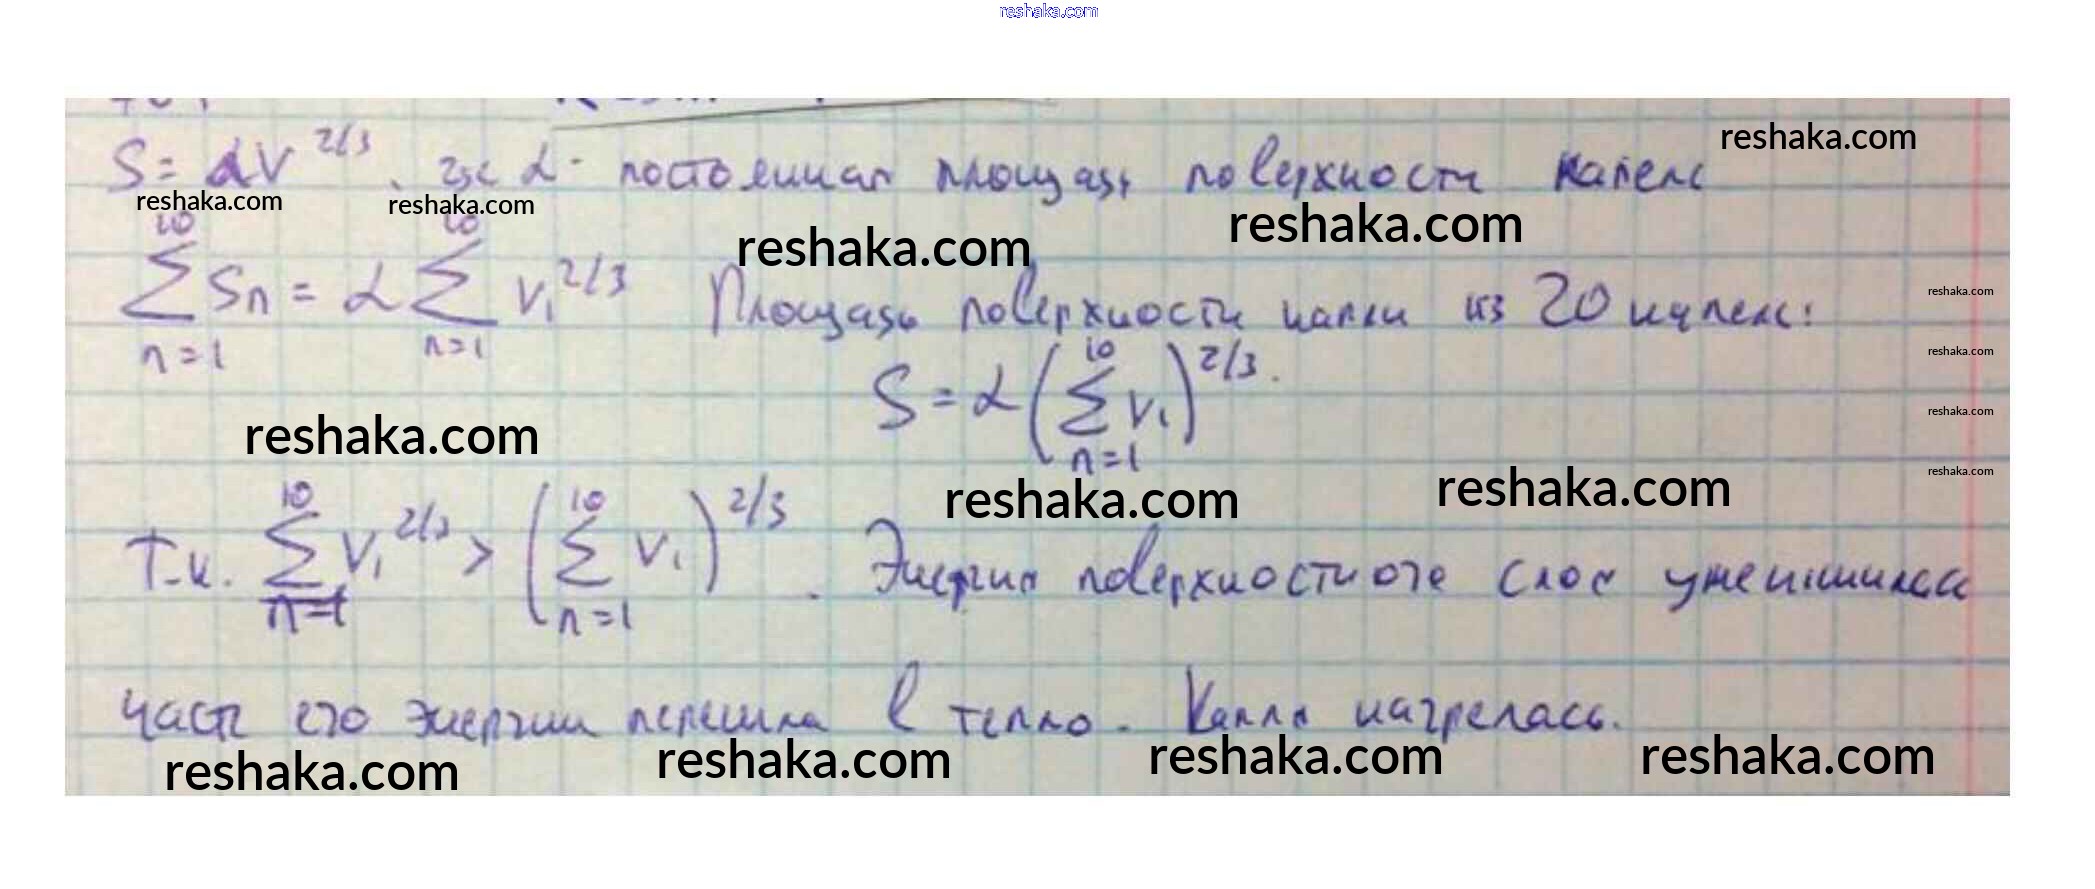 reshaka.com
S = αV^2/3, где α - постоянная площадь поверхности капель
reshaka.com
reshaka.com reshaka.com
reshaka.com reshaka.com
∑_{n=1}^{10} Sn = α ∑_{n=1}^{10} V₁^2/3 Площадь поверхности капли из 20 капель:
reshaka.com
reshaka.com
S = α (∑_{n=1}^{10} V₁)^2/3.
reshaka.com
reshaka.com
reshaka.com
reshaka.com reshaka.com
Т.к. ∑_{n=1}^{10} V₁^2/3 > (∑_{n=1}^{10} V₁)^2/3. Энергия поверхностного слоя уменьшилась
часть его энергии перешла в тепло. Капля нагрелась.
reshaka.com reshaka.com reshaka.com reshaka.com